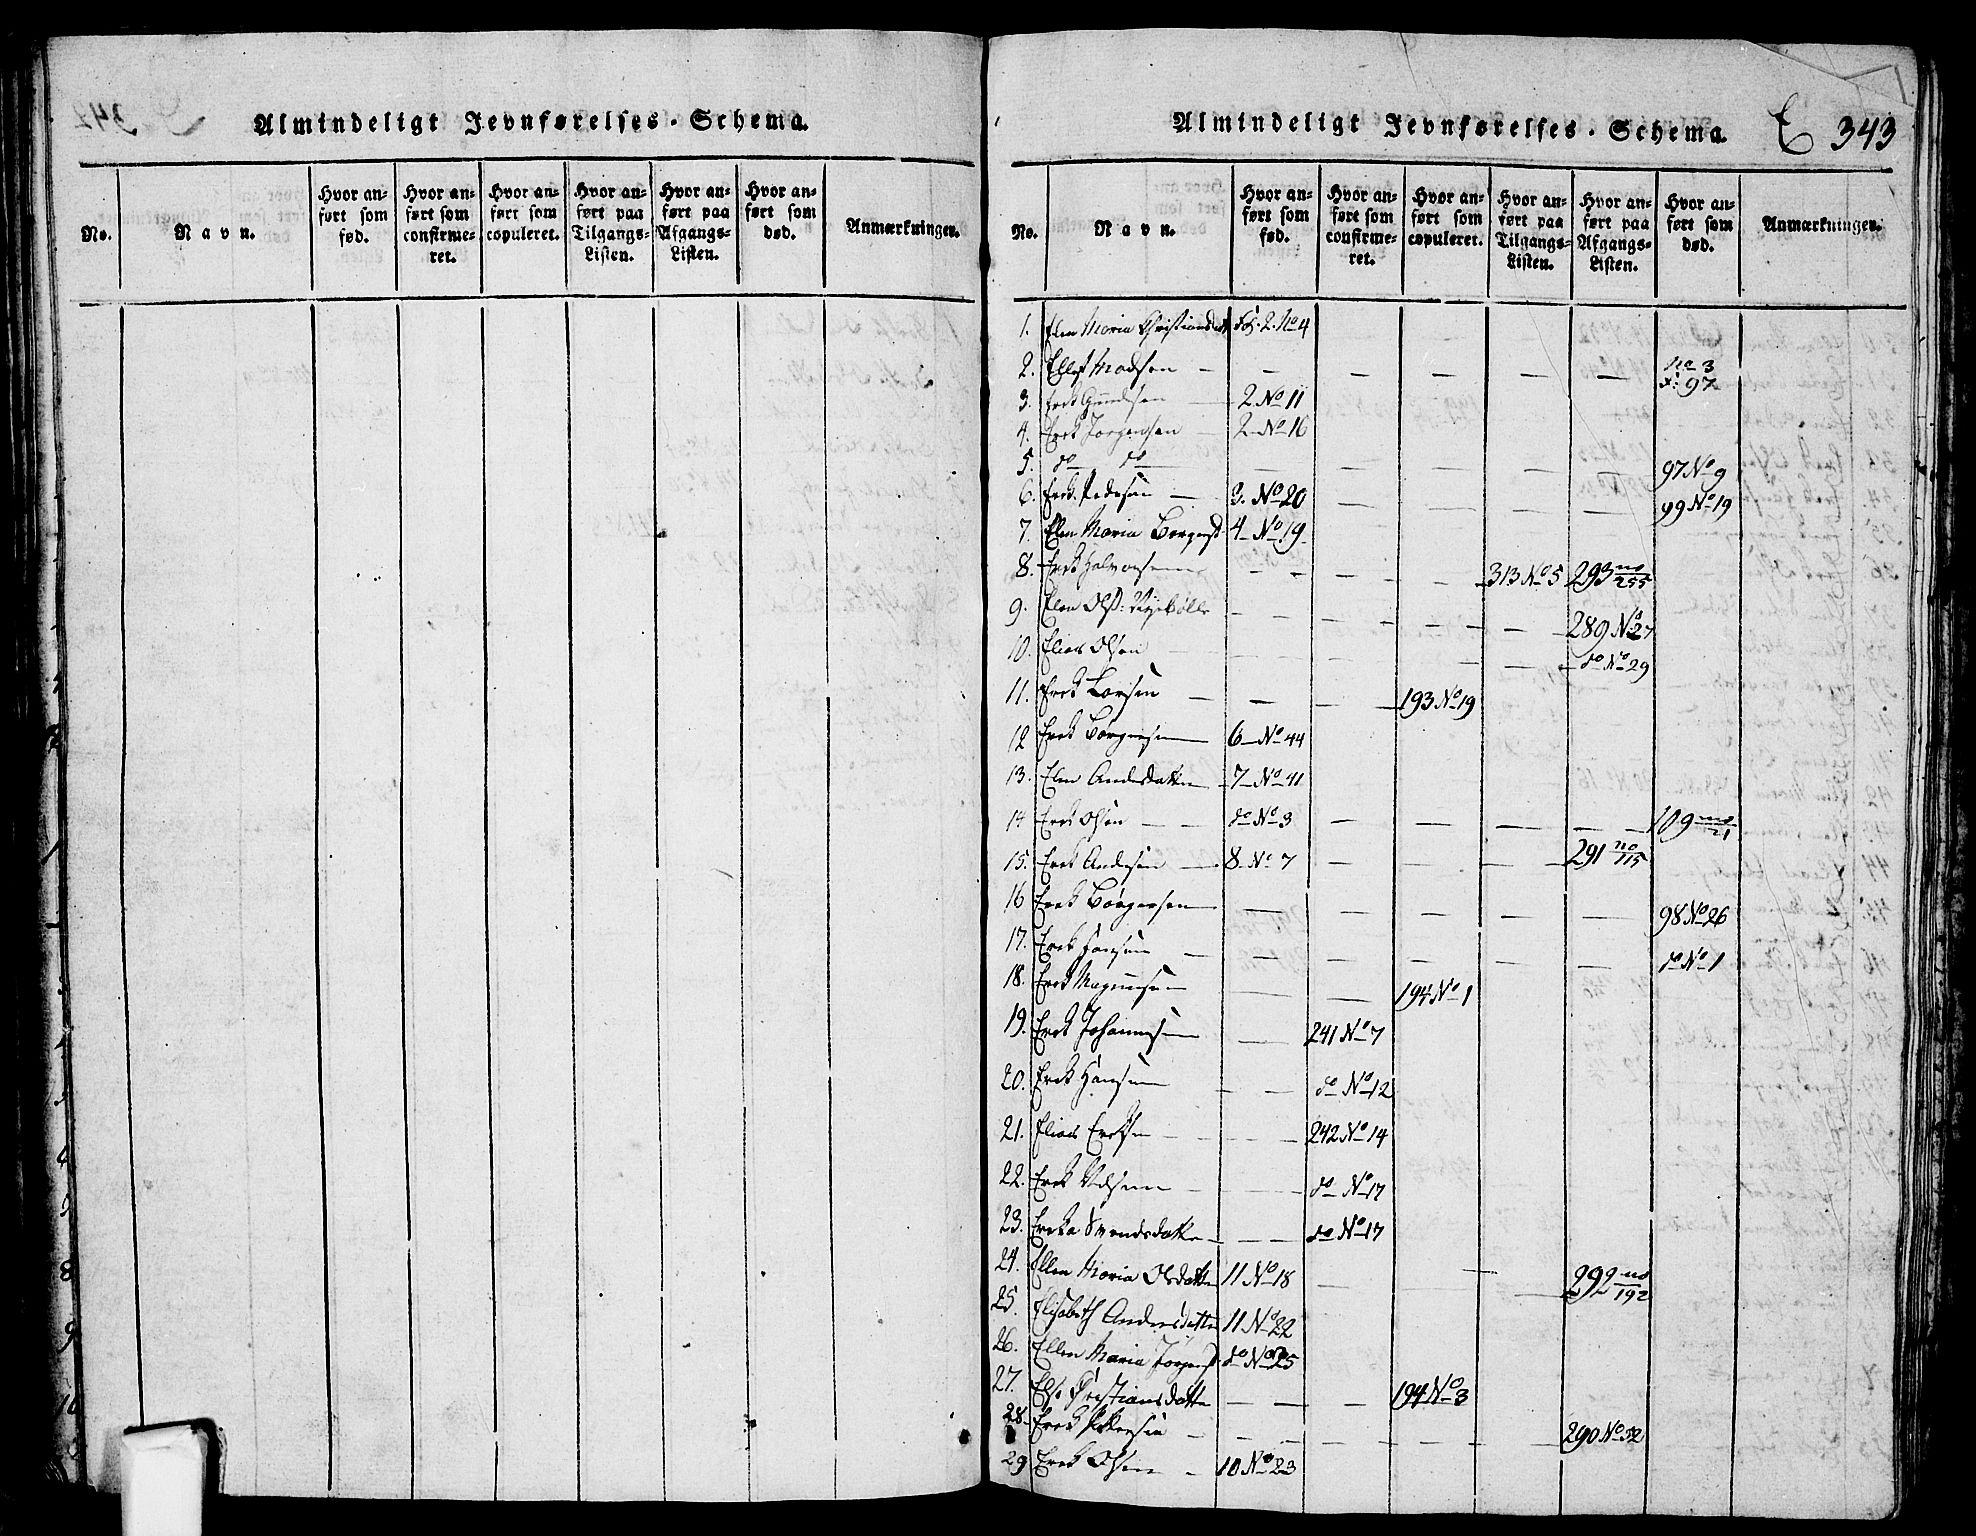 Almindeligt Jevnførelses-Schema.
No. Navn. Hvor anført som fød. Hvor anført som confirmeret. Hvor anført som copuleret. Hvor anført paa Tilgangs-Listen. Hvor anført paa Afgangs-Listen. Hvor anført som død. Anmærkninger.
Almindeligt Jevnførelses-Schema. E 343
No. Navn. Hvor anført som fød. Hvor anført som confirmeret. Hvor anført som copuleret. Hvor anført paa Tilgangs-Listen. Hvor anført paa Afgangs-Listen. Hvor anført som død. Anmærkninger.
1. Elen Maria Christiansdatt Fol. 2. No 4
2. Ellef Madsen — — — — — — No 3 f: 97
3. Erek Gundsen — 2 No 11
4. Erek Jørgensen — 2 No 16
5. do do — — — — — 97 No 9
6. Erek Pedersen — 3. No 20 — — — — 99 No 19
7. Elen Maria Børgersd 4 No 19
8. Erek Halvorsen — — — — 313 No 5 293 no 255
9. Elen Olsd: — — — — 289 No 27
10. Elias Olsen — — — — — do No 29
11. Erek Larsen — — — 193 No 19
12 Erek Børgersen — 6 No 44
13. Elen Andersdatter — 7 No 41
14 Erek Olsen — — do No 3 — — — — 109 no 21
15. Erek Andersen — 8 No 7 — — — 291 no 115
16 Erek Børgersen — — — — — 98 No 26
17. Erek Hansen — — — — — — do No 1
18. Erek Magnussen — — — 194 No 1
19. Erek Johannesen — — 241 No 7
20. Erek Hansen — — do No 12
21. Elias Ereksen — — 242 No 14
22. Erek — — do No 17
23. Ereka Svendsdatter — — do No 17
24. Ellen Maria Olsdatter 11 No 18 — — — 292 no 192
25. Elisabeth Andersdatter 11 No 22
26. Ellen Maria Jørgensd do No 25
27. Else Christiansdatter — — — 194 No 3
28. Erek Pettersen — — — — — 290 No 32
29 Erek Olsen — 10 No 23